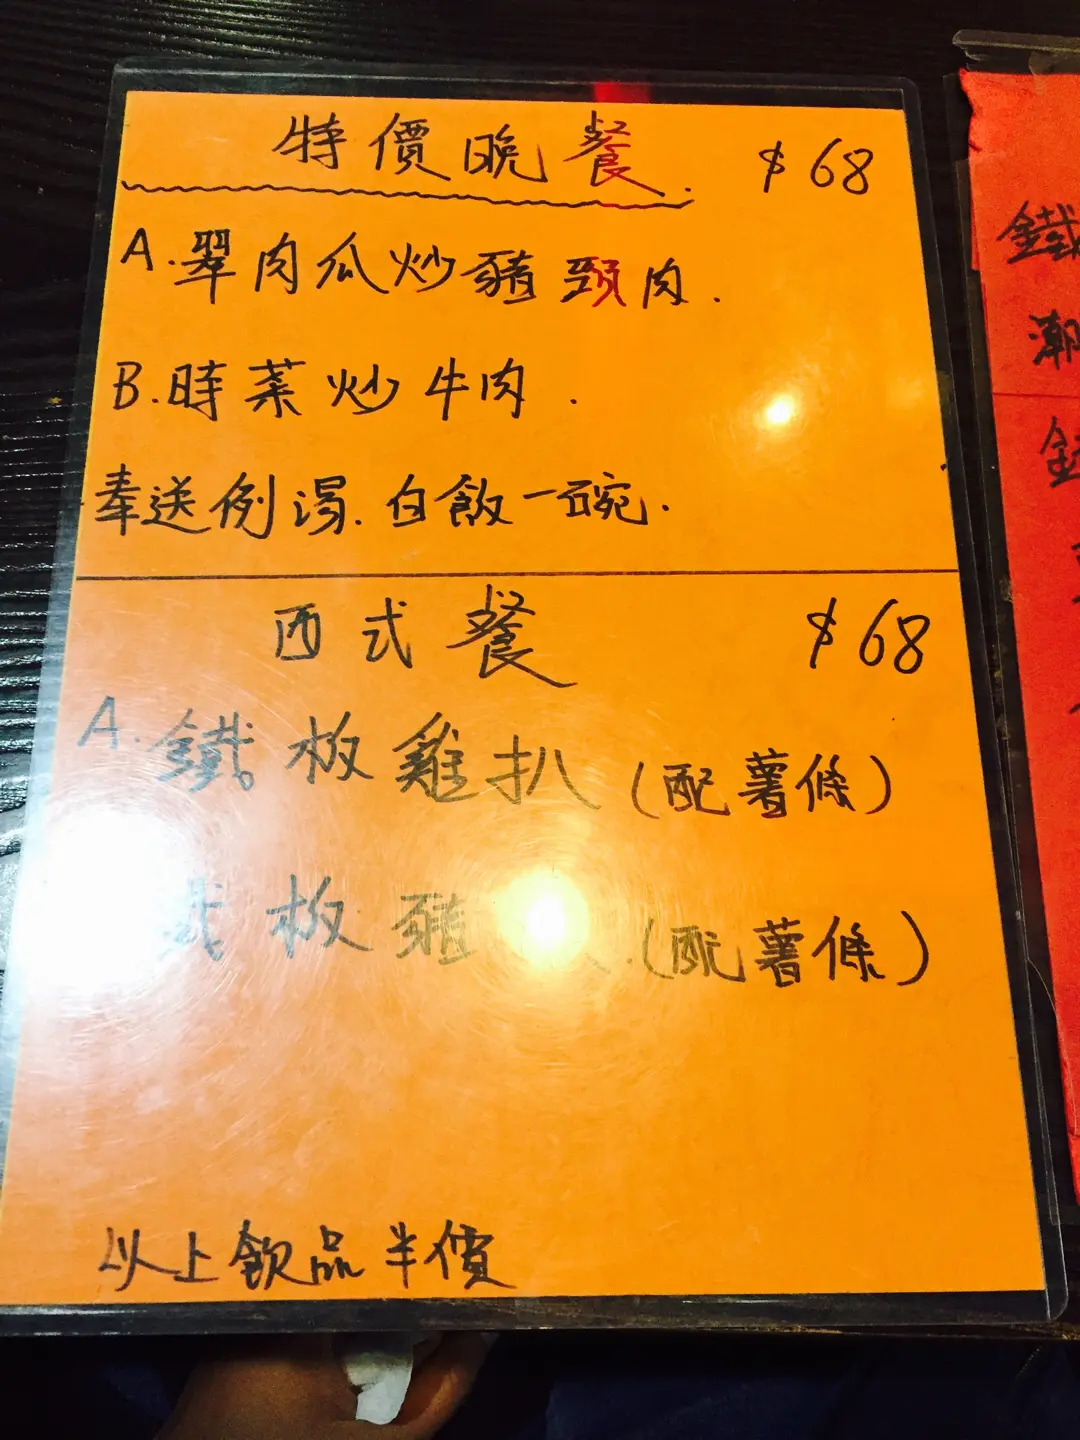 特價晚餐. $68
A.翠肉瓜炒豬頸肉.
B.時菜炒牛肉.
奉送例湯.白飯一碗.
西式餐 $68
A.鐵板雞扒(配薯條)
板豬(配薯條)
以上飲品半價
鐵
潮